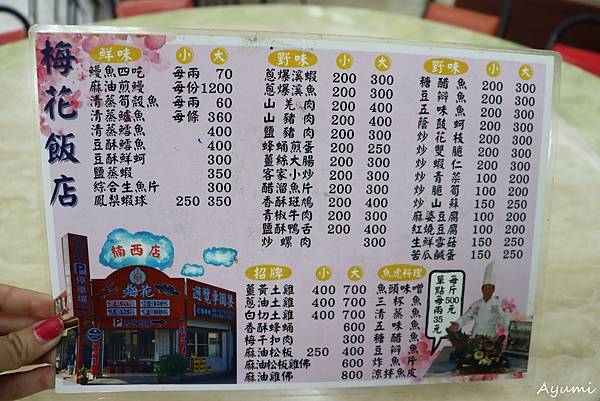 梅花飯店
鮮味 小 大
鰻魚四吃 每兩 70
麻油煎鰻 每份1200
清蒸筍殼魚 每兩 60
清蒸鱸魚 每條 360
清蒸鱈魚 400
豆酥鱈魚 400
豆酥鮮蚵 300
鹽蒸蝦 350
綜合生魚片 300
鳳梨蝦球 250 350
野味 小 大
蔥爆溪蝦 200 300
蔥爆溪魚 200 300
山羌肉 200 400
山豬肉 200 400
鹽豬肉 200 300
蜂蛹煎蛋 200 250
薑絲大腸 200 300
客家小炒 200 300
醋溜魚片 200 300
香酥斑鳩 200 300
香椒牛肉 200 300
青鹽鴨舌 200 400
炒螺肉 300
野味 小 大
糖醋魚 200 300
豆瓣魚 200 300
五味魚 200 300
蔭豉蚵 200 300
炒花枝 200 300
炒雙脆 200 300
炒蝦仁 200 300
炒青菜 100 200
炒脆筍 100 200
炒山蘇 100 200
麻婆豆腐 100 200
紅燒豆腐 100 200
生鮮雪菇 150 250
苦瓜鹹蛋 150 250
招牌 小 大
薑黃土雞 400 700
蔥油土雞 400 700
白切土雞 400 700
香酥蜂蛹 600
梅干扣肉 300
麻油松板 250 400
麻油松板雞佛 600
麻油雞佛 800
魚虎料理
魚頭味噌
三杯魚
清蒸魚
五味魚
糖醋魚
豆瓣魚
炸魚片
涼拌魚皮
每斤500元
單點每兩35元
楠西店
梅花
P停車場
Ayumi